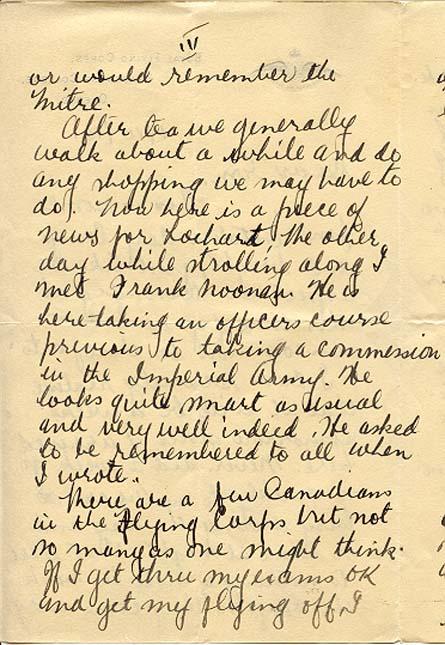 IV
or would remember the
Mitre.
After tea we generally
walk about a while and do
any shopping we may have to
do. Now here is a piece of
news for Lochart, the other
day while strolling along I
met Frank Noonan. He is
here taking an officers course
previous to taking a commession
in the Imperial Army. He
looks quite smart as usual
and very well indeed. He asked
to be remembered to all when
I wrote..
There are a few Canadians
in the Flying Corps but not
so many as one might think.
If I get thru my exams OK
and get my flying off, I